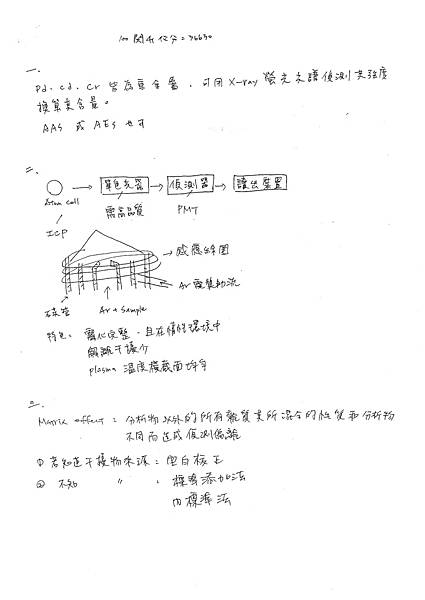 100 関枋儀分=36630
一.
Pd. Cd. Cr 皆為重金屬,可用 X-ray 螢光光譜偵測其強度
換算其含量。
AAS 或 AES 也可
二.
Atom cell → 單色光器 → 偵測器 → 讀出裝置
需高品質 PMT
ICP
感應線圈
Ar 電漿物流
石英管 Ar + Sample
特色:霧化完整,且在惰性環境中
解離干擾少
plasma 溫度橫截面均勻
三.
Matrix effect:分析物以外的所有雜質其所混合的性質和分析物
不同而造成偵測偏離
① 若知道干擾物來源:空白校正
② 不知 〃 〃:標準添加法
內標準法